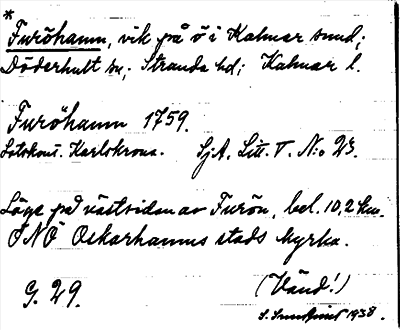 *
Furöhamn, vik på ö i Kalmar sund;
Döderhult sn; Stranda hd; Kalmar l.
Furöhamn 1759.
Lotskont. Karlskrona. SjA. Litt. V. N:o 23.
Läge på västsidan av Furön, bel. 10,2 km.
ONO Oskarhamns stads kyrka.
G. 29. (Vänd!)
1938.